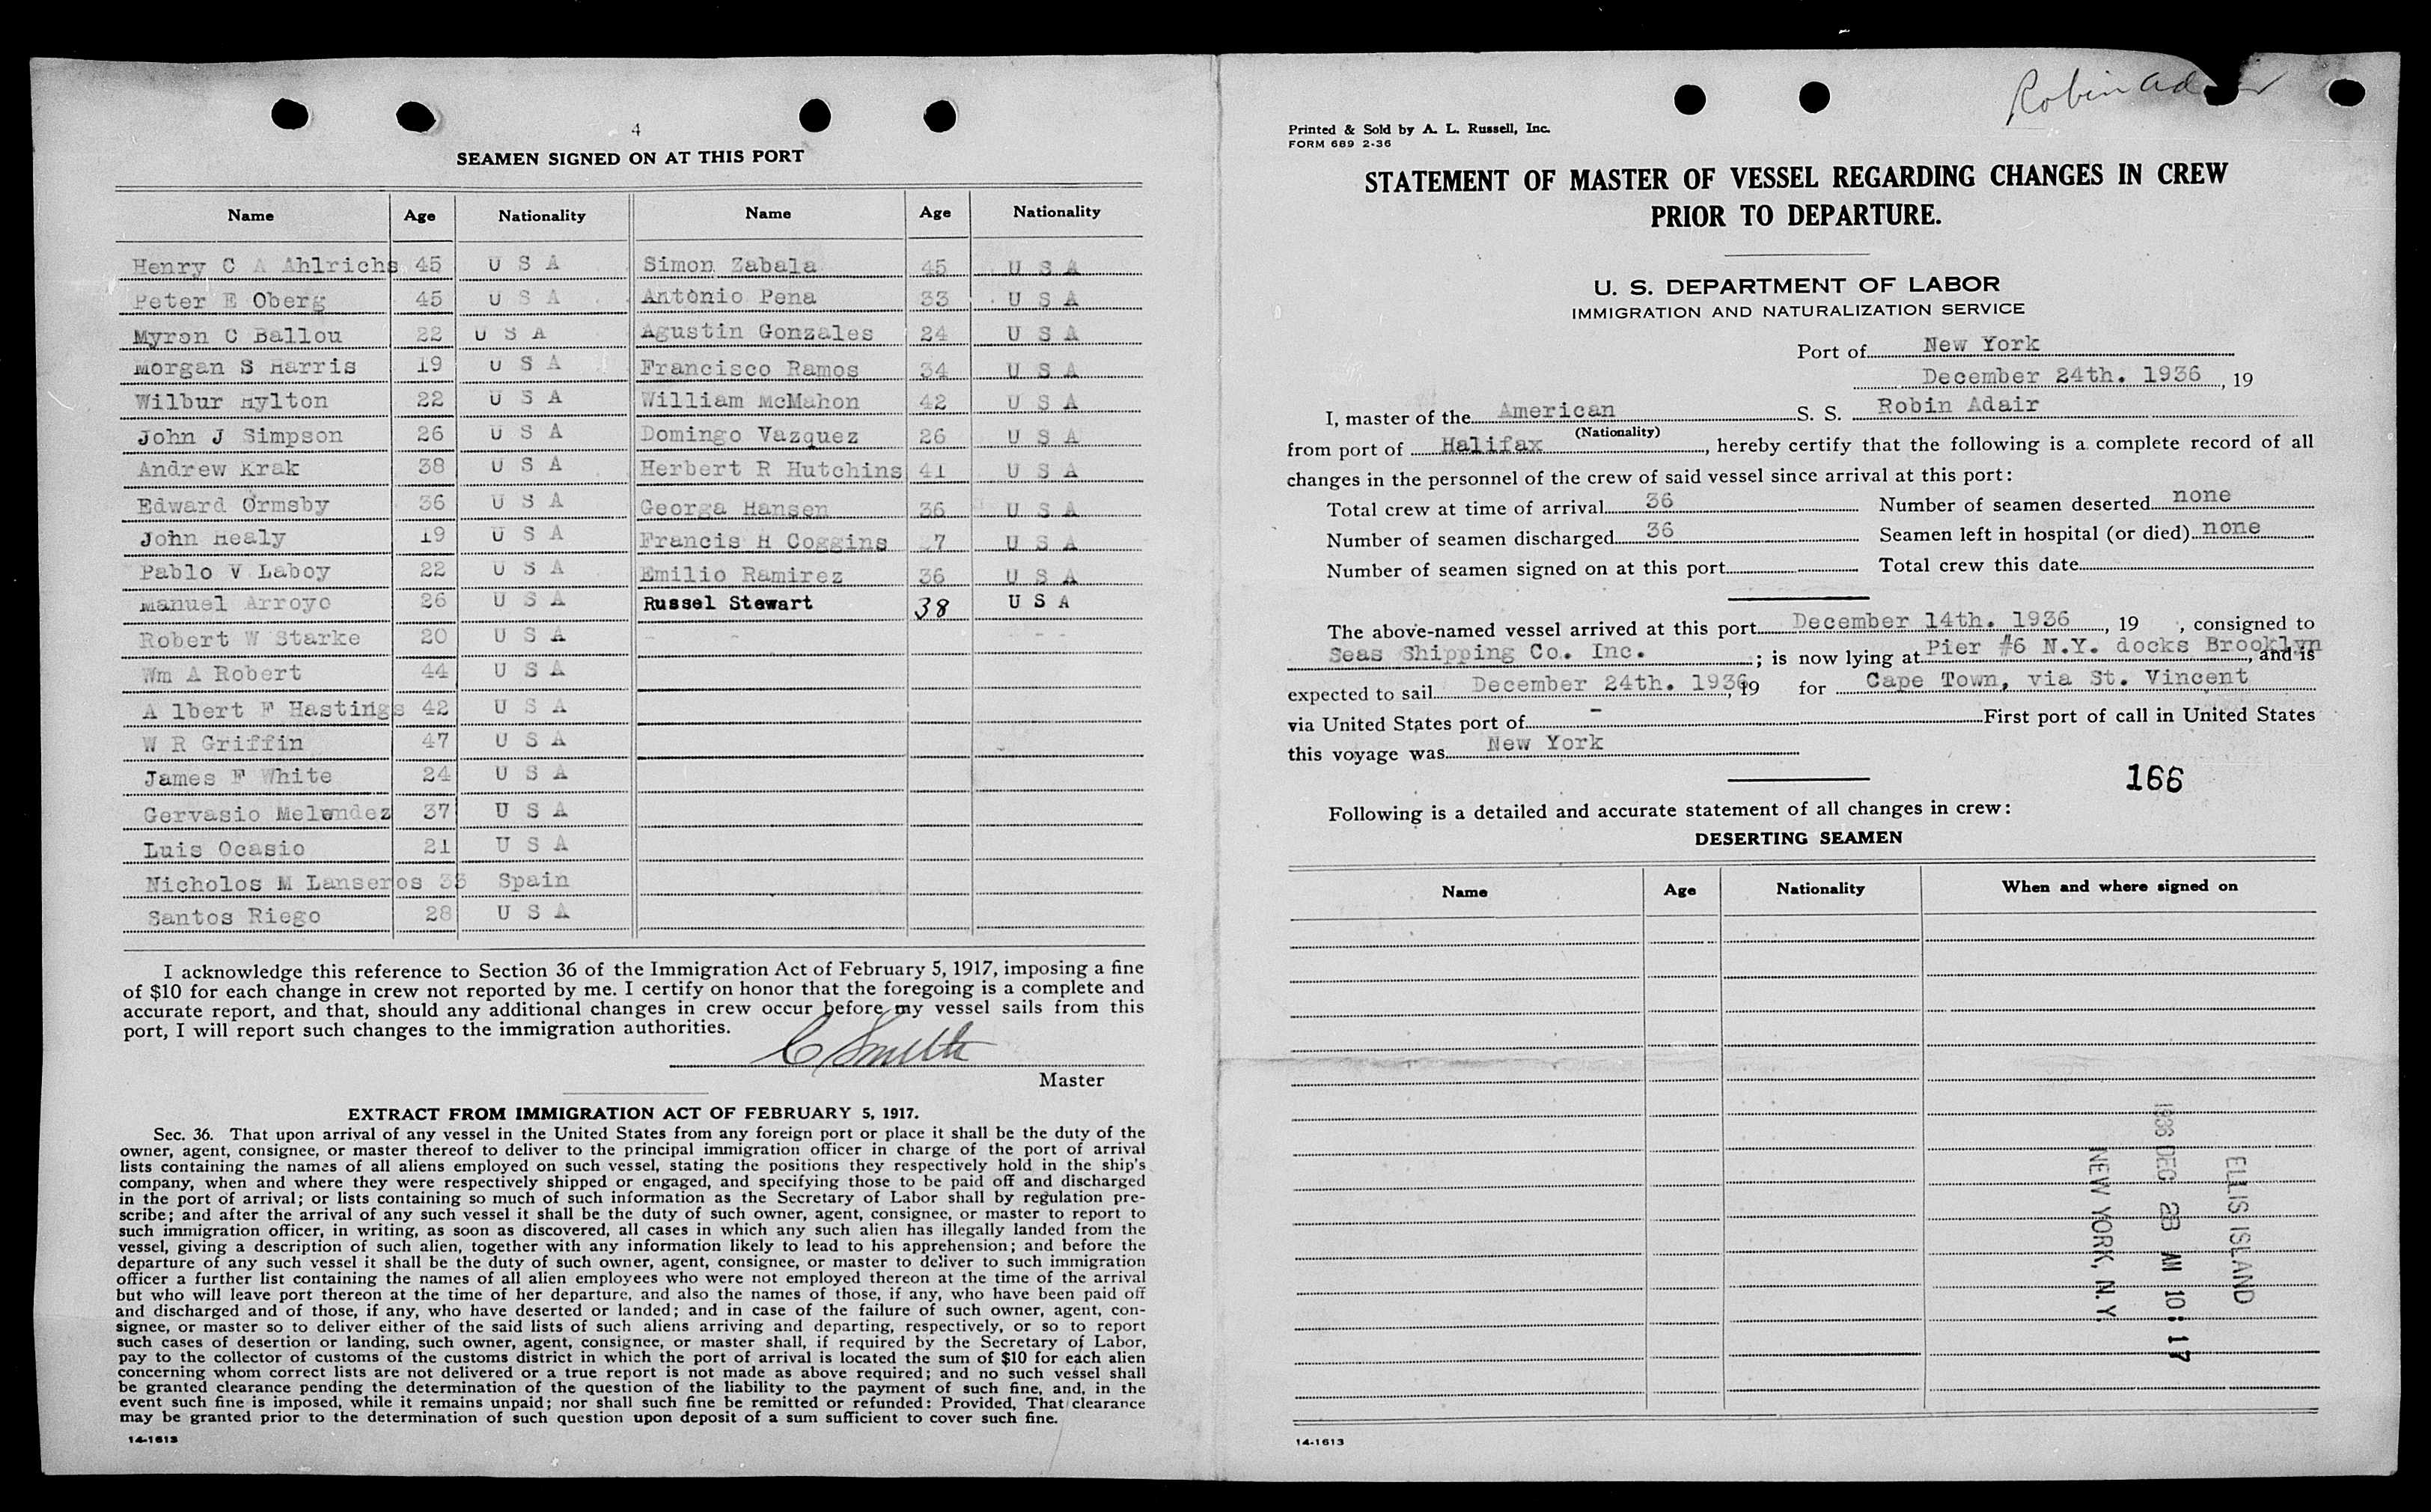 4
SEAMEN SIGNED ON AT THIS PORT
Name Age Nationality Name Age Nationality
Henry C A Ahlrichs 45 U S A Simon Zabala 45 U S A
Peter E Oberg 45 U S A Antonio Pena 33 U S A
Myron C Ballou 22 U S A Agustin Gonzales 24 U S A
Morgan S Harris 19 U S A Francisco Ramos 34 U S A
Wilbur Hylton 22 U S A William McMahon 42 U S A
John J Simpson 26 U S A Domingo Vazquez 26 U S A
Andrew Krak 38 U S A Herbert R Hutchins 41 U S A
Edward Ormsby 36 U S A Georga Hansen 36 U S A
John Healy 19 U S A Francis H Coggins U S A
Pablo V Laboy 22 U S A Emilio Ramirez 36 U S A
Manuel Arroyo 26 U S A Russel Stewart 38 U S A
Robert W Starke 20 U S A - - - -
Wm A Robert 44 U S A
A lbert F Hastings 42 U S A
W R Griffin 47 U S A
James F White 24 U S A
Gervasio Melendez 37 U S A
Luis Ocasio 21 U S A
Nicholos M Lanseros 33 Spain
Santos Riego 28 U S A
I acknowledge this reference to Section 36 of the Immigration Act of February 5, 1917, imposing a fine
of $10 for each change in crew not reported by me. I certify on honor that the foregoing is a complete and
accurate report, and that, should any additional changes in crew occur before my vessel sails from this
port, I will report such changes to the immigration authorities.
C Smith
Master
EXTRACT FROM IMMIGRATION ACT OF FEBRUARY 5, 1917.
Sec. 36. That upon arrival of any vessel in the United States from any foreign port or place it shall be the duty of the
owner, agent, consignee, or master thereof to deliver to the principal immigration officer in charge of the port of arrival
lists containing the names of all aliens employed on such vessel, stating the positions they respectively hold in the ship's
company, when and where they were respectively shipped or engaged, and specifying those to be paid off and discharged
in the port of arrival; or lists containing so much of such information as the Secretary of Labor shall by regulation pre-
scribe; and after the arrival of any such vessel it shall be the duty of such owner, agent, consignee, or master to report to
such immigration officer, in writing, as soon as discovered, all cases in which any such alien has illegally landed from the
vessel, giving a description of such alien, together with any information likely to lead to his apprehension; and before the
departure of any such vessel it shall be the duty of such owner, agent, consignee, or master to deliver to such immigration
officer a further list containing the names of all alien employees who were not employed thereon at the time of the arrival
but who will leave port thereon at the time of her departure, and also the names of those, if any, who have been paid off
and discharged and of those, if any, who have deserted or landed; and in case of the failure of such owner, agent, con-
signee, or master so to deliver either of the said lists of such aliens arriving and departing, respectively, or so to report
such cases of desertion or landing, such owner, agent, consignee, or master shall, if required by the Secretary of Labor,
pay to the collector of customs of the customs district in which the port of arrival is located the sum of $10 for each alien
concerning whom correct lists are not delivered or a true report is not made as above required; and no such vessel shall
be granted clearance pending the determination of the question of the liability to the payment of such fine, and, in the
event such fine is imposed, while it remains unpaid; nor shall such fine be remitted or refunded: Provided, That clearance
may be granted prior to the determination of such question upon deposit of a sum sufficient to cover such fine.
14-1613
Robin Ad
Printed & Sold by A. L. Russell, Inc.
FORM 689 2-36
STATEMENT OF MASTER OF VESSEL REGARDING CHANGES IN CREW
PRIOR TO DEPARTURE.
U. S. DEPARTMENT OF LABOR
IMMIGRATION AND NATURALIZATION SERVICE
Port of New York
December 24th. 1936, 19
I, master of the American S. S. Robin Adair
(Nationality)
from port of Halifax, hereby certify that the following is a complete record of all
changes in the personnel of the crew of said vessel since arrival at this port:
Total crew at time of arrival 36 Number of seamen deserted none
Number of seamen discharged 36 Seamen left in hospital (or died) none
Number of seamen signed on at this port Total crew this date
The above-named vessel arrived at this port December 14th. 1936, 19 , consigned to
Seas Shipping Co. Inc. ; is now lying at Pier #6 N.Y. docks Brooklyn, and is
expected to sail December 24th. 1936, 19 for Cape Town, via St. Vincent
via United States port of - First port of call in United States
this voyage was New York
166
Following is a detailed and accurate statement of all changes in crew:
DESERTING SEAMEN
Name Age Nationality When and where signed on
ELLIS ISLAND
1936 DEC 28 AM 10: 17
NEW YORK, N. Y.
14-1613